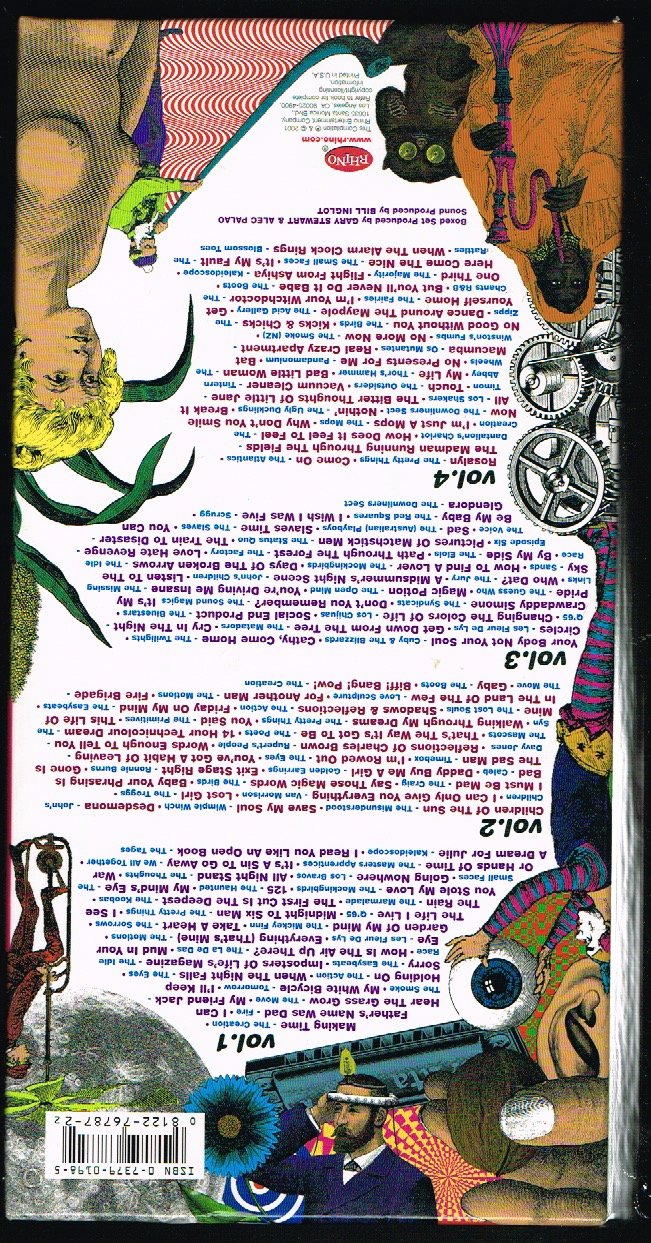 ISBN 0-7379-0196-5
0 8122-76787-2 2
vol.1
Making Time - The Creation •
Father's Name Was Dad - Fire • I Can
Hear The Grass Grow - The Move • My Friend Jack -
The Smoke • My White Bicycle - Tomorrow • I'll Keep
Holding On - The Action • When The Night Falls - The Eyes •
Sorry - The Easybeats • Imposters Of Life's Magazine - The Idle
Race • How Is The Air Up There? - The La De Das • Mud In Your
Eye - Les Fleur De Lys • Everything (That's Mine) - The Motions •
Garden Of My Mind - The Mickey Finn • Take A Heart - The Sorrows
The Life I Live - Q65 • Midnight To Six Man - The Pretty Things • I See
The Rain - The Marmalade • The First Cut Is The Deepest - The Koobas •
You Stole My Love - The Mockingbirds • 125 - The Haunted • My Mind's Eye - The
Small Faces • Going Nowhere - Los Bravos • All Night Stand - The Thoughts • War
Or Hands Of Time - The Masters Apprentices • It's A Sin To Go Away - We All Together •
A Dream For Julie - Kaleidoscope • I Read You Like An Open Book - The Tages
vol.2
Children Of The Sun - The Misunderstood • Save My Soul - Wimple Winch • Desdemona - John's
Children • I Can Only Give You Everything - Van Morrison • Lost Girl - The Troggs •
I Must Be Mad - The Craig • Say Those Magic Words - The Birds • Baby Your Phrasing Is
Bad - Caleb • Daddy Buy Me A Girl - Golden Earrings • Exit Stage Right - Ronnie Burns • Gone Is
The Sad Man - Timebox • I'm Rowed Out - The Eyes • You've Got A Habit Of Leaving -
Davy Jones • Reflections Of Charles Brown - Rupert's People • Words Enough To Tell You -
The Mascots • That's The Way It's Got To Be - The Poets • 14 Hour Technicolour Dream - The
Syn • Walking Through My Dreams - The Pretty Things • You Said - The Primitives • This Life Of
Mine - The Lost Souls • Shadows & Reflections - The Action • Friday On My Mind - The Easybeats •
In The Land Of The Few - Love Sculpture • For Another Man - The Motions • Fire Brigade -
The Move • Gaby - The Boots • Biff! Bang! Pow! - The Creation
vol.3
Your Body Not Your Soul - Cuby & The Blizzards • Cathy, Come Home - The Twilights •
Circles - Les Fleur De Lys • Get Down From The Tree - The Matadors • Cry In The Night -
Q'65 • Changing The Colors Of Life - Los Chijuas • Social End Product - The Bluestars •
Crawdaddy Simone - The Syndicats • Don't You Remember? - The Sound Magics • It's My
Pride - The Guess Who • Magic Potion - The Open Mind • You're Driving Me Insane - The Missing
Links • Who Dat? - The Jury • A Midsummer's Night Scene - John's Children • Listen To The
Sky - Sands • How To Find A Lover - The Mockingbirds • Days Of The Broken Arrows - The Idle
Race • By My Side - The Elois • Path Through The Forest - The Factory • Love Hate Revenge -
Episode Six • Pictures Of Matchstick Men - The Status Quo • The Train To Disaster -
The Voice • Sad - The (Australian) Playboys • Slaves Time - The Slaves • You Can
Be My Baby - The Red Squares • I Wish I Was Five - Scrugg •
Glendora - The Downliners Sect
vol.4
Rosalyn - The Pretty Things • Come On - The Atlantics •
The Madman Running Through The Fields -
Dantalian's Chariot • How Does It Feel To Feel - The
Creation • I'm Just A Mops - The Mops • Why Don't You Smile
Now - The Downliners Sect • Nothin' - The Ugly Ducklings • Break It
All - Los Shakers • The Bitter Thoughts Of Little Jane -
Timon • Touch - The Outsiders • Vacuum Cleaner - Tintern
Abbey • My Life - Thor's Hammer • Bad Little Woman - The
Wheels • No Presents For Me - Pandamonium • Bat
Macumba - Os Mutantes • Real Crazy Apartment -
Winston's Fumbs • No More Now - The Smoke (NZ) •
No Good Without You - The Birds • Kicks & Chicks - The
Zipps • Dance Around The Maypole - The Acid Gallery • Get
Yourself Home - The Fairies • I'm Your Witchdoctor - The
Chants R&B • But You'll Never Do It Babe - The Boots •
One Third - The Majority • Flight From Ashiya - Kaleidoscope •
Here Come The Nice - The Small Faces • It's My Fault - The
Rattles • When The Alarm Clock Rings - Blossom Toes
Boxed Set Produced by GARY STEWART & ALEC PALAO
Sound Produced by BILL INGLOT
RHINO®
www.rhino.com
This Compilation ℗ & © 2001
Rhino Entertainment Company,
10635 Santa Monica Blvd.,
Los Angeles, CA. 90025-4900.
Refer to book for complete
copyright/licensing
information.
Printed in U.S.A.